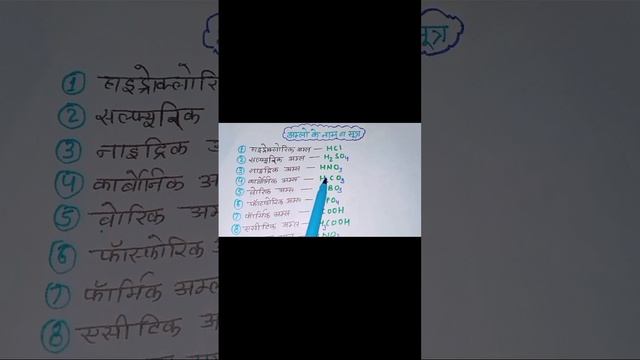 अम्लों के नाम व सूत्र
① हाइड्रोक्लोरिक अम्ल — HCl
② सल्फ्यूरिक अम्ल — H₂SO₄
③ नाइट्रिक अम्ल — HNO₃
④ कार्बोनिक अम्ल — H₂CO₃
⑤ बोरिक अम्ल — BO₃
⑥ फॉस्फोरिक अम्ल — PO₄
⑦ फॉर्मिक अम्ल — COOH
⑧ एसीटिक अम्ल — COOH
सूत्र
① हाइड्रोक्लोरि
② सल्फ्यूरिक
③ नाइट्रिक अ
④ कार्बोनिक अ
⑤ बोरिक अम
⑥ फॉस्फोरिक
⑦ फॉर्मिक अम्ल
⑧ एसीटिक अ